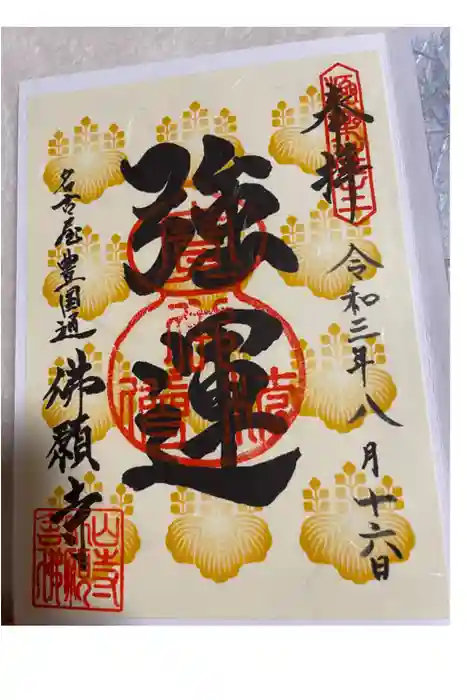 奉拝
令和三年八月十六日
強運
名古屋豊国通
佛願寺